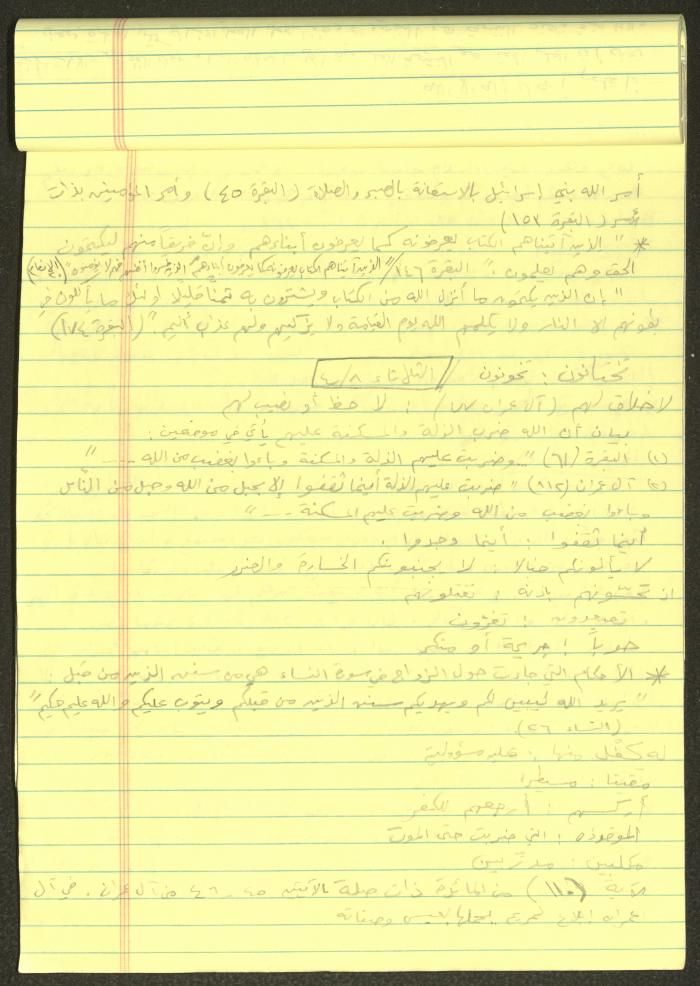 أمر الله بني إسرائيل بالاستعانة بالصبر والصلاة (البقرة ٤٥) وأمر المؤمنين بذات
(البقرة ١٥٣)
* "الذين آتيناهم الكتاب يعرفونه كما يعرفون أبناءهم وإن فريقا منهم ليكتمون
الحق وهم يعلمون." البقرة ١٤٦ / "الذين آتيناهم الكتاب يعرفونه كما يعرفون أبناءهم الذين خسروا أنفسهم فهم لا يؤمنون" (الأنعام)
"إن الذين يكتمون ما أنزل الله من الكتاب ويشترون به ثمنا قليلا أولئك ما يأكلون في
بطونهم إلا النار ولا يكلمهم الله يوم القيامة ولا يزكيهم ولهم عذاب أليم" (البقرة ١٧٤)
تختانون : تخونون / الثلاثاء ٤/٨
لا خلاق لهم (آل عمران ٧٧) : لا حظ أو نصيب لهم
بيان أن الله ضرب الذلة والمسكنة عليهم يأتي في موضعين :
(١) البقرة (٦١) "وضربت عليهم الذلة والمسكنة وباءوا بغضب من الله ---- "
(٢) آل عمران (١١٢) "ضربت عليهم الذلة أينما ثقفوا إلا بحبل من الله وحبل من الناس
وباءوا بغضب من الله وضربت عليهم المسكنة --- "
أينما ثقفوا : أينما وجدوا .
لا يألونكم خبالا : لا يجنبونكم الخسارة والضرر
إذ تحسونهم بإذنه : تقتلونهم
تصعدون : تفرون
حوبا : جريمة أو منكر
* الأحكام التي جاءت حول الزواج في سورة النساء هي من سنن الذين من قبل :
"يريد الله ليبين لكم ويهديكم سنن الذين من قبلكم ويتوب عليكم والله عليم حكيم"
(النساء ٢٦).
له كفل منها : عليه مسؤولية
مقيتا : مسيطرا
أركسهم : أرجعهم للكفر
الموقوذة : التي ضربت حتى الموت
مكلبين : مدربين
الآية (١١٠) من المائدة ذات صلة بالآيتين ٤٥ - ٤٦ من آل عمران . في آل
عمران إبلاغ لمريم بحملها بعيسى وصفاته